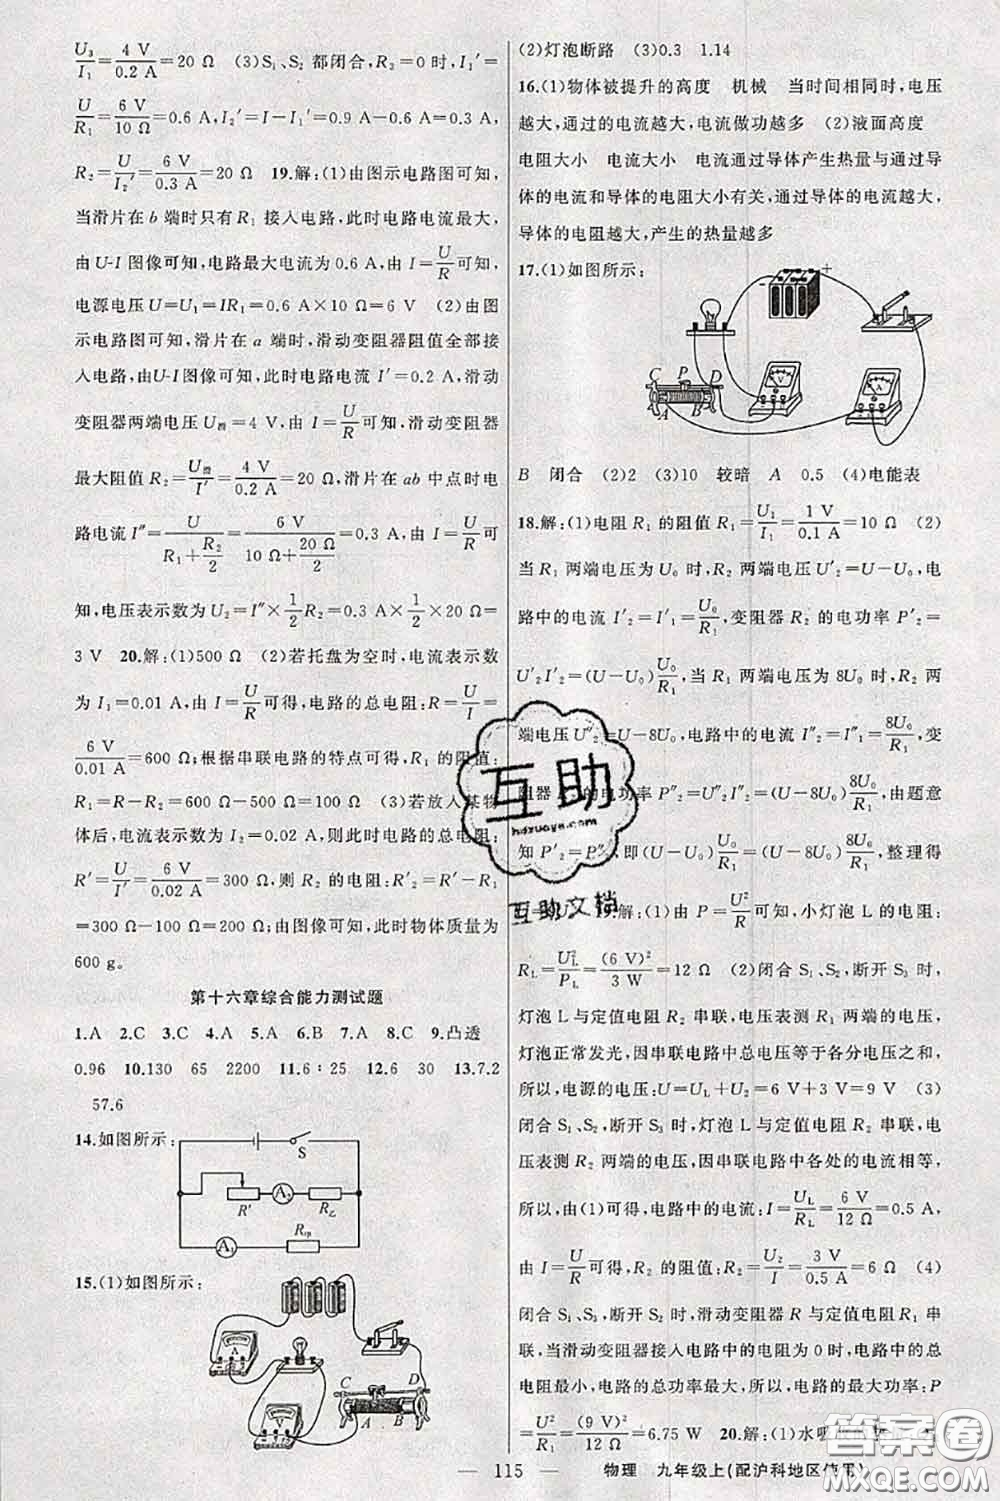 U₃/I₁=4 V/0.2 A=20 Ω (3)S₁、S₂ 都闭合,R₂=0时,I₁′=
U/R₁=6 V/10 Ω=0.6 A,I₂′=I-I₁′=0.9 A-0.6 A=0.3 A,
R₂=U/I₂′=6 V/0.3 A=20 Ω 19.解:(1)由图示电路图可知,
当滑片在 b 端时只有 R₁ 接入电路,此时电路电流最大,
由 U-I 图像可知,电路最大电流为 0.6 A,由 I=U/R可知,
电源电压 U=U₁=IR₁=0.6 A×10 Ω=6 V (2)由图
示电路图可知,滑片在 a 端时,滑动变阻器阻值全部接
入电路,由U-I图像可知,此时电路电流 I′=0.2 A,滑动
变阻器两端电压 U滑=4 V,由 I=U/R可知,滑动变阻器
最大阻值 R₂=U滑/I′=4 V/0.2 A=20 Ω,滑片在 ab 中点时电
路电流 I″=U/(R₁+R₂/2)=6 V/(10 Ω+20 Ω/2)=0.3 A,由 I=U/R可
知,电压表示数为 U₂=I″×1/2R₂=0.3 A×1/2×20 Ω=
3 V 20.解:(1)500 Ω (2)若托盘为空时,电流表示数
为 I₁=0.01 A,由 I=U/R可得,电路的总电阻:R=U/I₁=
6 V/0.01 A=600 Ω;根据串联电路的特点可得,R₁ 的阻值:
R₁=R-R₂=600 Ω-500 Ω=100 Ω (3)若放入某物
体后,电流表示数为 I₂=0.02 A,则此时电路的总电阻:
R′=U/I′=6 V/0.02 A=300 Ω,则 R₂ 的电阻:R′₂=R′-R₁
=300 Ω-100 Ω=200 Ω;由图像可知,此时物体质量为
600 g。
第十六章综合能力测试题
1.A 2.C 3.C 4.A 5.A 6.B 7.A 8.C 9.凸透
0.96 10.130 65 2200 11.6∶25 12.6 30 13.7.2
57.6
14.如图所示:
S
R′ A₂ R乙
A₁ R甲
15.(1)如图所示:
A
V
C D
A B
(2)灯泡断路 (3)0.3 1.14
16.(1)物体被提升的高度 机械 当时间相同时,电压
越大,通过的电流越大,电流做功越多 (2)液面高度
电阻大小 电流大小 电流通过导体产生热量与通过导
体的电流和导体的电阻大小有关,通过导体的电流越大,
导体的电阻越大,产生的热量越多
17.(1)如图所示:
+
C P D
A B
V
A
B 闭合 (2)2 (3)10 较暗 A 0.5 (4)电能表
18.解:(1)电阻 R₁ 的阻值 R₁=U₁/I₁=1 V/0.1 A=10 Ω (2)
当 R₁ 两端电压为 U₀ 时,R₂ 两端电压 U′₂=U-U₀,电
路中的电流 I′₂=I′₁=U₀/R₁,变阻器 R₂ 的电功率 P′₂=
U′₂I′₂=(U-U₀)U₀/R₁,当 R₁ 两端电压为 8U₀ 时,R₂ 两
端电压 U″₂=U-8U₀,电路中的电流 I″₂=I″₁=8U₀/R₁,变
阻器 的电功率 P″₂=U″₂I″₂=(U-8U₀)8U₀/R₁,由题意
知 P′₂=P″₂,即(U-U₀)U₀/R₁=(U-8U₀)8U₀/R₁,整理得
解:(1)由 P=U²/R可知,小灯泡 L 的电阻:
R_L=U_L²/P_L=(6 V)²/3 W=12 Ω (2)闭合 S₁、S₂,断开 S₃ 时,
灯泡 L 与定值电阻 R₂ 串联,电压表测 R₂ 两端的电压,
灯泡正常发光,因串联电路中总电压等于各分电压之和,
所以,电源的电压:U=U_L+U₂=6 V+3 V=9 V (3)
闭合 S₁、S₂,断开 S₃ 时,灯泡 L 与定值电阻 R₂ 串联,电
压表测 R₂ 两端的电压,因串联电路中各处的电流相等,
所以,由(1)可得,电路中的电流:I=U_L/R_L=6 V/12 Ω=0.5 A,
由 I=U/R可得,R₂ 的阻值:R₂=U₂/I=3 V/0.5 A=6 Ω (4)
闭合 S₁、S₃,断开 S₂ 时,滑动变阻器 R 与定值电阻 R₁ 串
联,当滑动变阻器接入电路中的电阻为 0 时,电路中的总
电阻最小,电路的总功率最大,所以,电路的最大功率:P
=U²/R₁=(9 V)²/12 Ω=6.75 W 20.解:(1)水吸
互助
hdzuoye.com
互助文档
答案圈
MXQE.COM
— 115 — 物理 九年级上(配沪科地区使用)